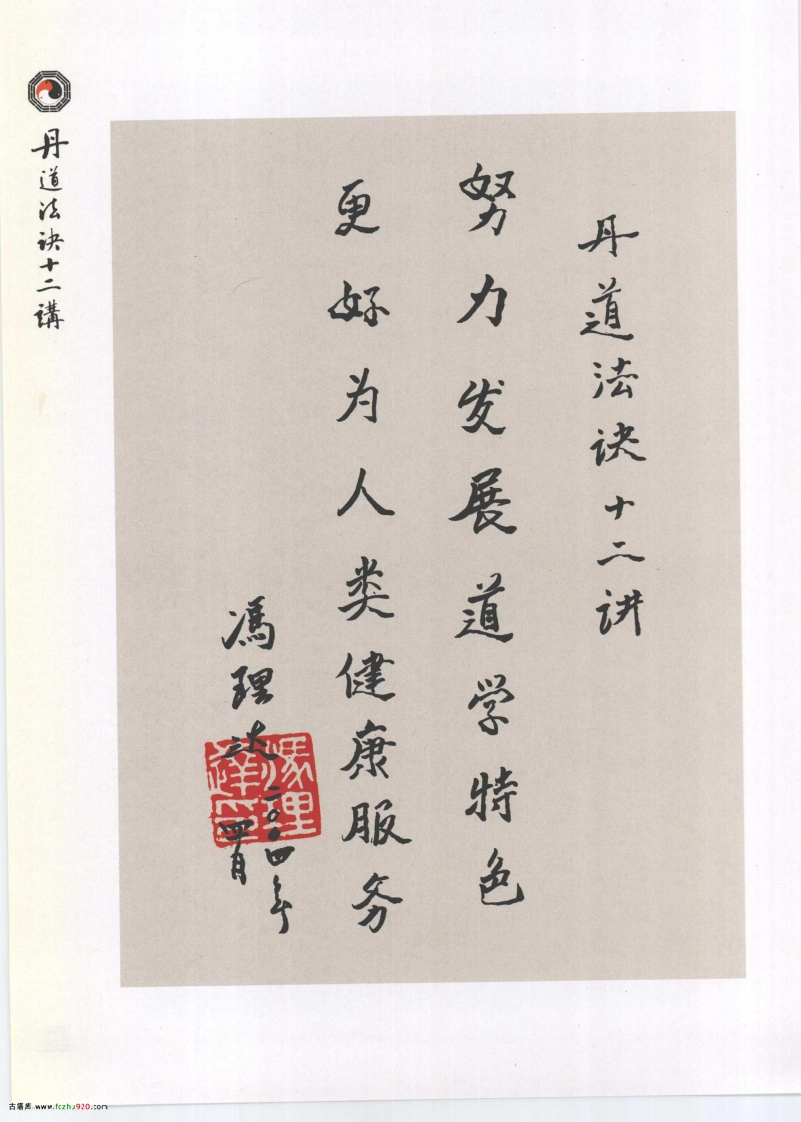 丹道法诀十二讲
努力发展道学特色
更好为人类健康服务
冯理达
二〇〇四年
四月
冯理達印
丹道法诀十二講
古籍库 www.fczhu920.com